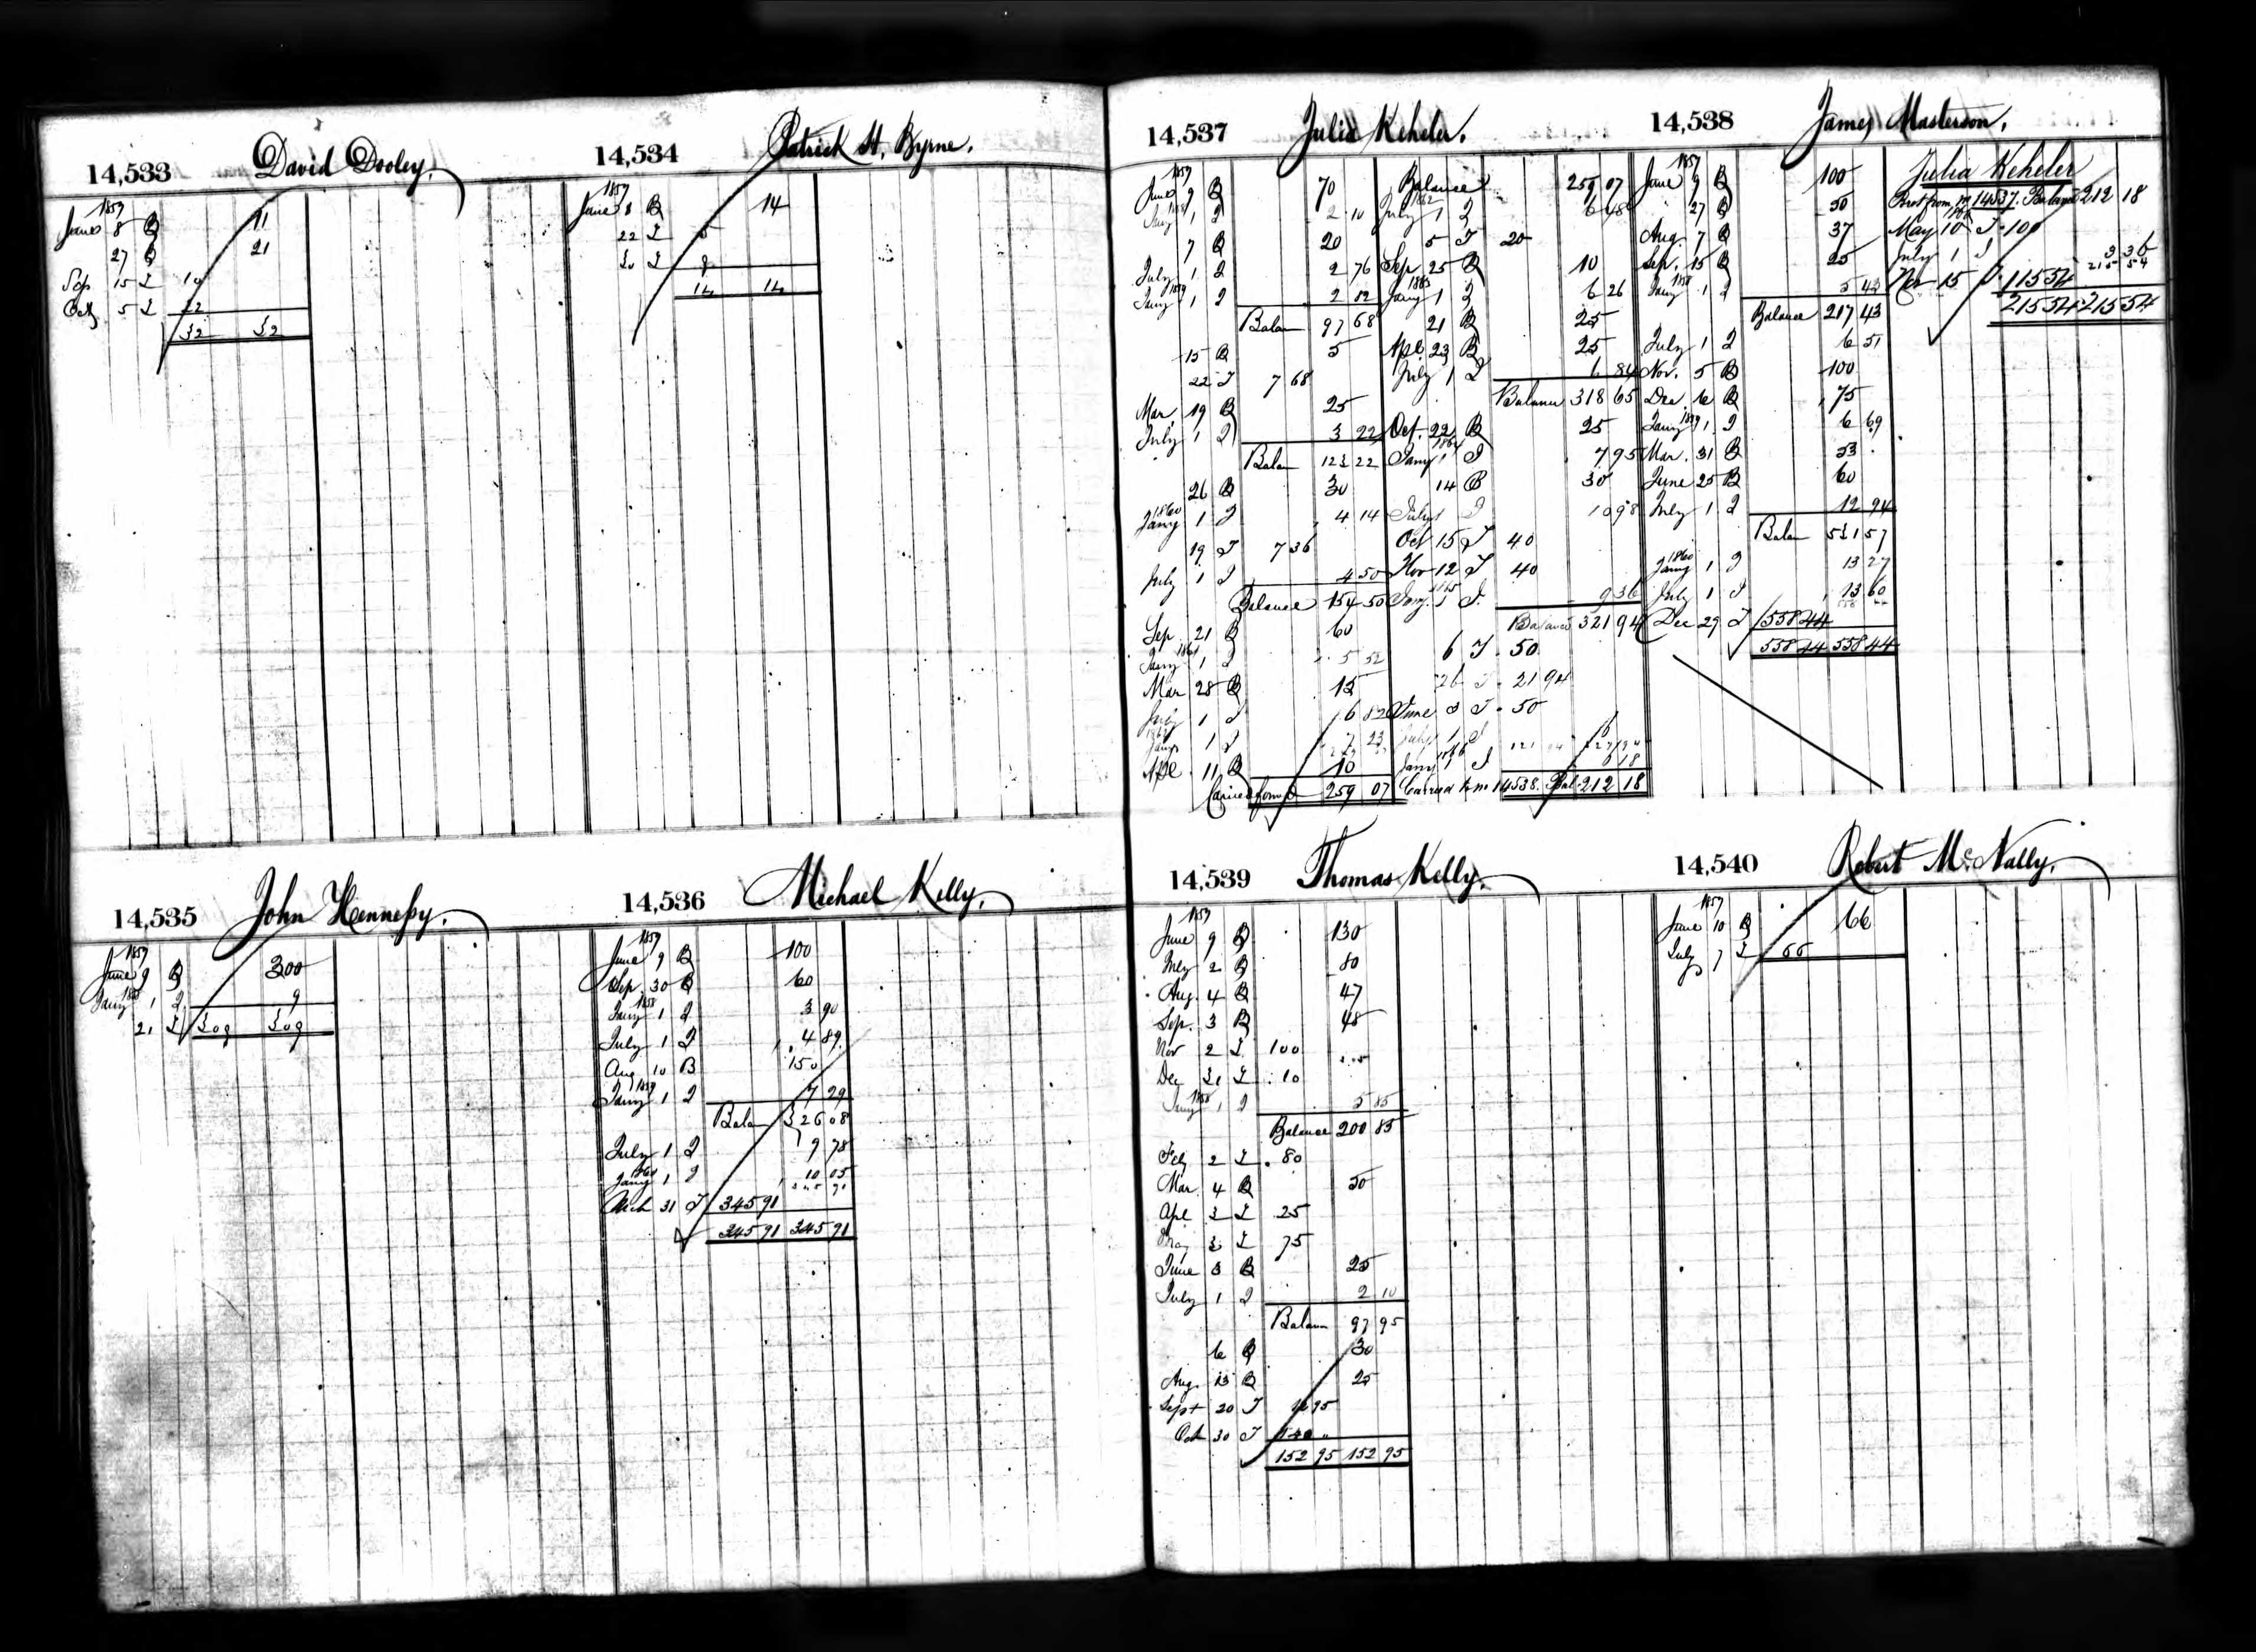 14,533 David Dooley.
1857
June 8 B 11
27 B 21
Sep 15 I 10
Oct 5 I 22
32 32
14,534 Patrick H. Byrne.
1857
June 8 B 14
22 I 5
30 I 9
14 14
14,535 John Hennessy.
1857
June 9 B 300
Jany 1858 1 I 9
21 I 309 309
14,536 Michael Kelly.
1857
June 9 B 100
Sep. 30 B 60
1858
Jany 1 I 3 90
July 1 I 4 89
Aug 10 B 150
1859
Jany 1 I 7 29
Balan 326 08
July 1 I 9 78
1860
Jany 1 I 10 05
345 91
Mch 31 I 345 91
345 91 345 91
14,537 Julia Keheler.
1857
June 9 B 70
1858
Jany 1 I 2 10
7 B 20
July 1 I 2 76
1859
Jany 1 I 2 82
Balan 97 68
15 B 5
22 I 7 68
Mar. 19 B 25
July 1 I 3 22
Balan 123 22
26 B 30
1860
Jany 1 I 4 14
19 I 7 36
July 1 I 4 50
Balance 154 50
Sep. 21 B 60
1861
Jany 1 I 5 52
Mar 28 B 15
July 1 I 6 82
1862
Jany 1 I 7 23
Apl 11 B 10
Carried forwd 259 07
Balance 259 07
1862
July 1 I 6 48
5 I 20
Sep 25 B 10
1863
Jany 1 I 6 26
21 B 25
Apl. 23 B 25
July 1 I 6 84
Balance 318 65
Oct. 22 B 25
1864
Jany 1 I 7 95
14 B 30
July 1 I 10 98
Oct 15 I 40
Nov 12 I 40
1865
Jany. 1 I. 9 36
Balance 321 94
6 I 50
26 I 21 94
June 3 I 50
July 1 I 6
1866
Jany 1 I 6 18
Carried to no 14538. Bal. 212 18
14,538 James Masterson.
1857
June 9 B 100
27 B 50
Aug. 7 B 37
Sep. 15 B 25
1858
Jany 1 I 5 43
Balance 217 43
July 1 I 6 51
Nov. 5 B 100
Dec. 6 B 75
Jany 1859 1 I 6 69
Mar. 31 B 53
June 25 B 60
July 1 I 12 94
Balan 531 57
1860
Jany 1 I 13 27
July 1 I 13 60
Dec 29 I 558 44
558 44 558 44
Julia Keheler
Brot from no 14537. Balance 212 18
1866
May 10 I 100
July 1 I 3 36
215 54
Nov 15 I 115 54
215 54 215 54
14,539 Thomas Kelly.
1857
June 9 B 130
July 2 B 80
Aug. 4 B 47
Sep. 3 B 48
Nov 2 I 100
Dec 31 I 10
1858
Jany 1 I 5 85
Balance 200 85
Feb 2 I 80
Mar. 4 B 50
Apl 3 I 25
May 3 I 75
June 3 B 25
July 1 I 2 10
Balan 97 95
6 B 30
Aug. 13 B 25
Sept 20 I 12 95
Oct 30 I 140
152 95 152 95
14,540 Robert McNally.
1857
June 10 B 66
July 7 I 66